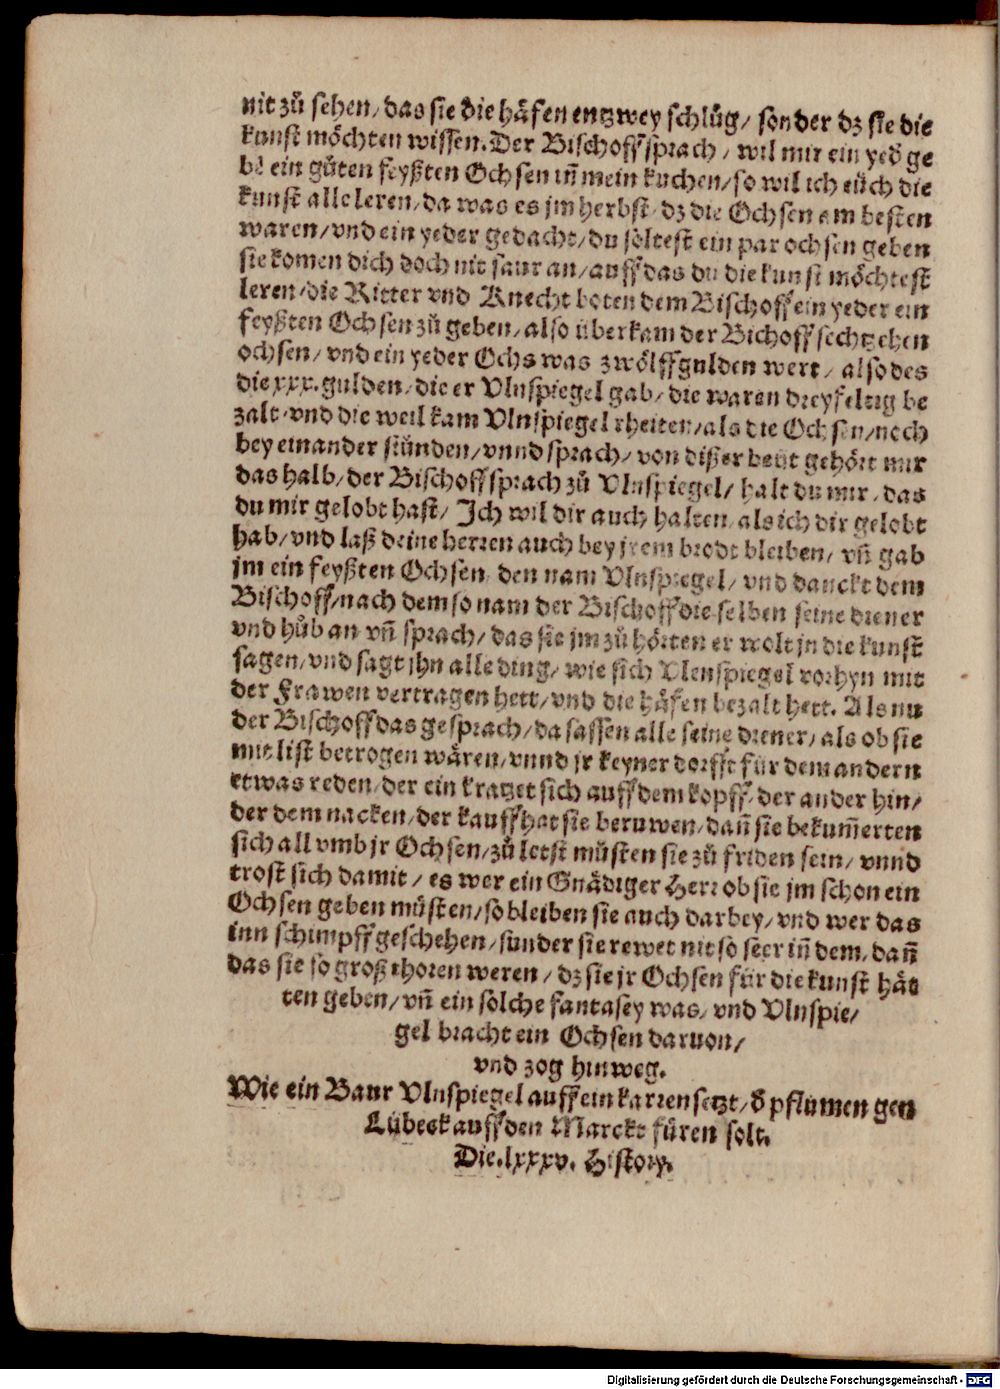 nit zů sehen/ das sie die häfen entzwey schlůg/ sonder dz sie die
kunst möchten wissen. Der Bischoff sprach/ wil mir ein yed ge
bē ein gůten feyßten Ochsen iñ mein kuchen/ so wil ich eüch die
kunst alle leren/ da was es jm herbst/ dz die Ochsen am besten
waren/ vnd ein yeder gedacht/ du soltest ein par ochsen geben
sie komen dich doch nit saur an/ auff das du die kunst möchtest
leren/ die Ritter vnd Knecht boten dem Bischoff ein yeder ein
feyßten Ochsen zů geben/ also überkam der Bichoff sechtzehen
ochsen/ vnd ein yeder Ochs was zwölff gulden wert/ also des
die xxx. gulden/ die er Vlnspiegel gab/ die waren dreyfeltig be
zalt/ vnd die weil kam Vlnspiegel rheiten/ als die Ochsen/ noch
bey einander stůnden/ vnnd sprach/ von dißer beüt gehört mir
das halb/ der Bischoff sprach zů Vlnspiegel/ halt du mir/ das
du mir gelobt hast/ Ich wil dir auch halten/ als ich dir gelobt
hab/ vnd laß deine herren auch bey jrem brodt bleiben/ vñ gab
jm ein feyßten Ochsen/ den nam Vlnspiegel/ vnd danckt dem
Bischoff/ nach dem so nam der Bischoff die selben seine diener
vnd hůb an vñ sprach/ das sie jm zů hörten er wolt jn die kunst
sagen/ vnd sagt jhn alle ding/ wie sich Vlenspiegel vorhyn mit
der Frawen vertragen hett/ vnd die häfen bezalt hett. Als nu
der Bischoff das gesprach/ da sassen alle seine diener/ als ob sie
mit list betrogen wären/ vnnd jr keyner dorfft für dem andern
etwas reden/ der ein kratzet sich auff dem kopff/ der ander hin/
der dem nacken/ der kauff hat sie beruwen/ dañ sie bekum̄erten
sich all vmb jr Ochsen/ zů letst můsten sie zů friden sein/ vnnd
trost sich damit/ es wer ein Gnädiger Herr ob sie jm schon ein
Ochsen geben můsten/ so bleiben sie auch darbey/ vnd wer das
inn schimpff geschehen/ sunder sie rewet nit so seer iñ dem/ dañ
das sie so groß thoren weren/ dz sie jr Ochsen für die kunst hät
ten geben/ vñ ein solche fantasey was/ vnd Vlnspie/
gel bracht ein Ochsen daruon/
vnd zog hinweg.
Wie ein Baur Vlnspiegel auff ein karren setzt/ d pflumen gen
Lübeck auff den Marckt füren solt.
Die. lxxxv. History.
Digitalisierung gefördert durch die Deutsche Forschungsgemeinschaft - DFG